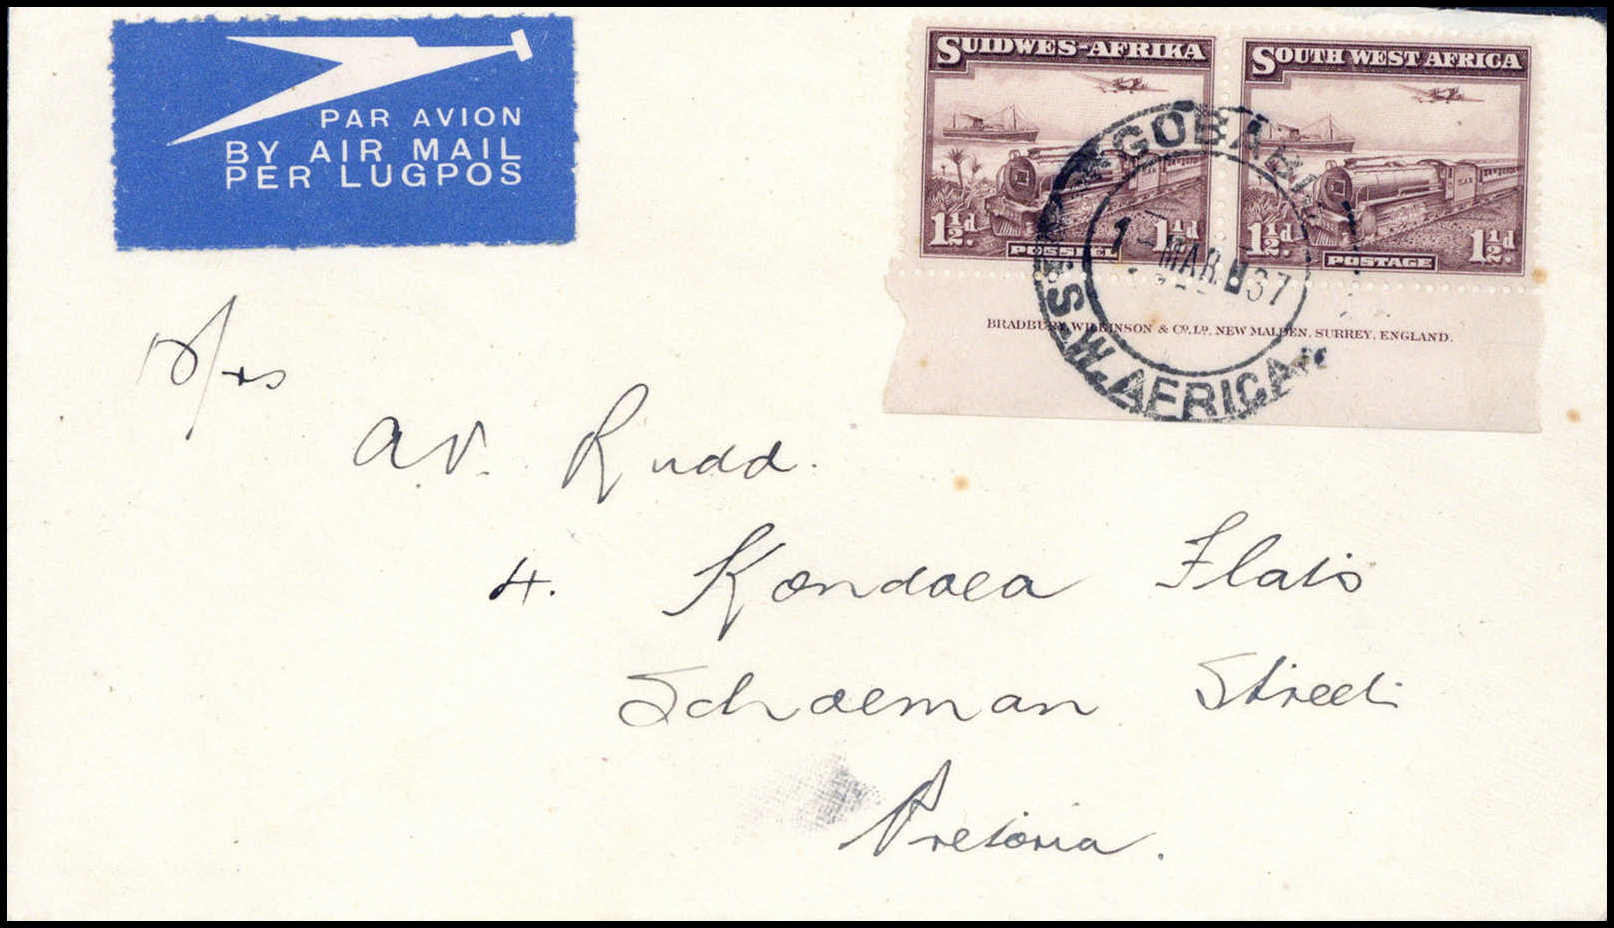 PAR AVION
BY AIR MAIL
PER LUGPOS
SUIDWES-AFRIKA
1½d. POSSEEL 1½d.
SOUTH WEST AFRICA
1½d. POSTAGE 1½d.
BRADBURY, WILKINSON & CO. LD. NEW MALDEN, SURREY, ENGLAND.
GOBABIS
1 MAR 37
S.W. AFRICA
A V. Rudd.
4. Flats
Schoeman Street
Pretoria.